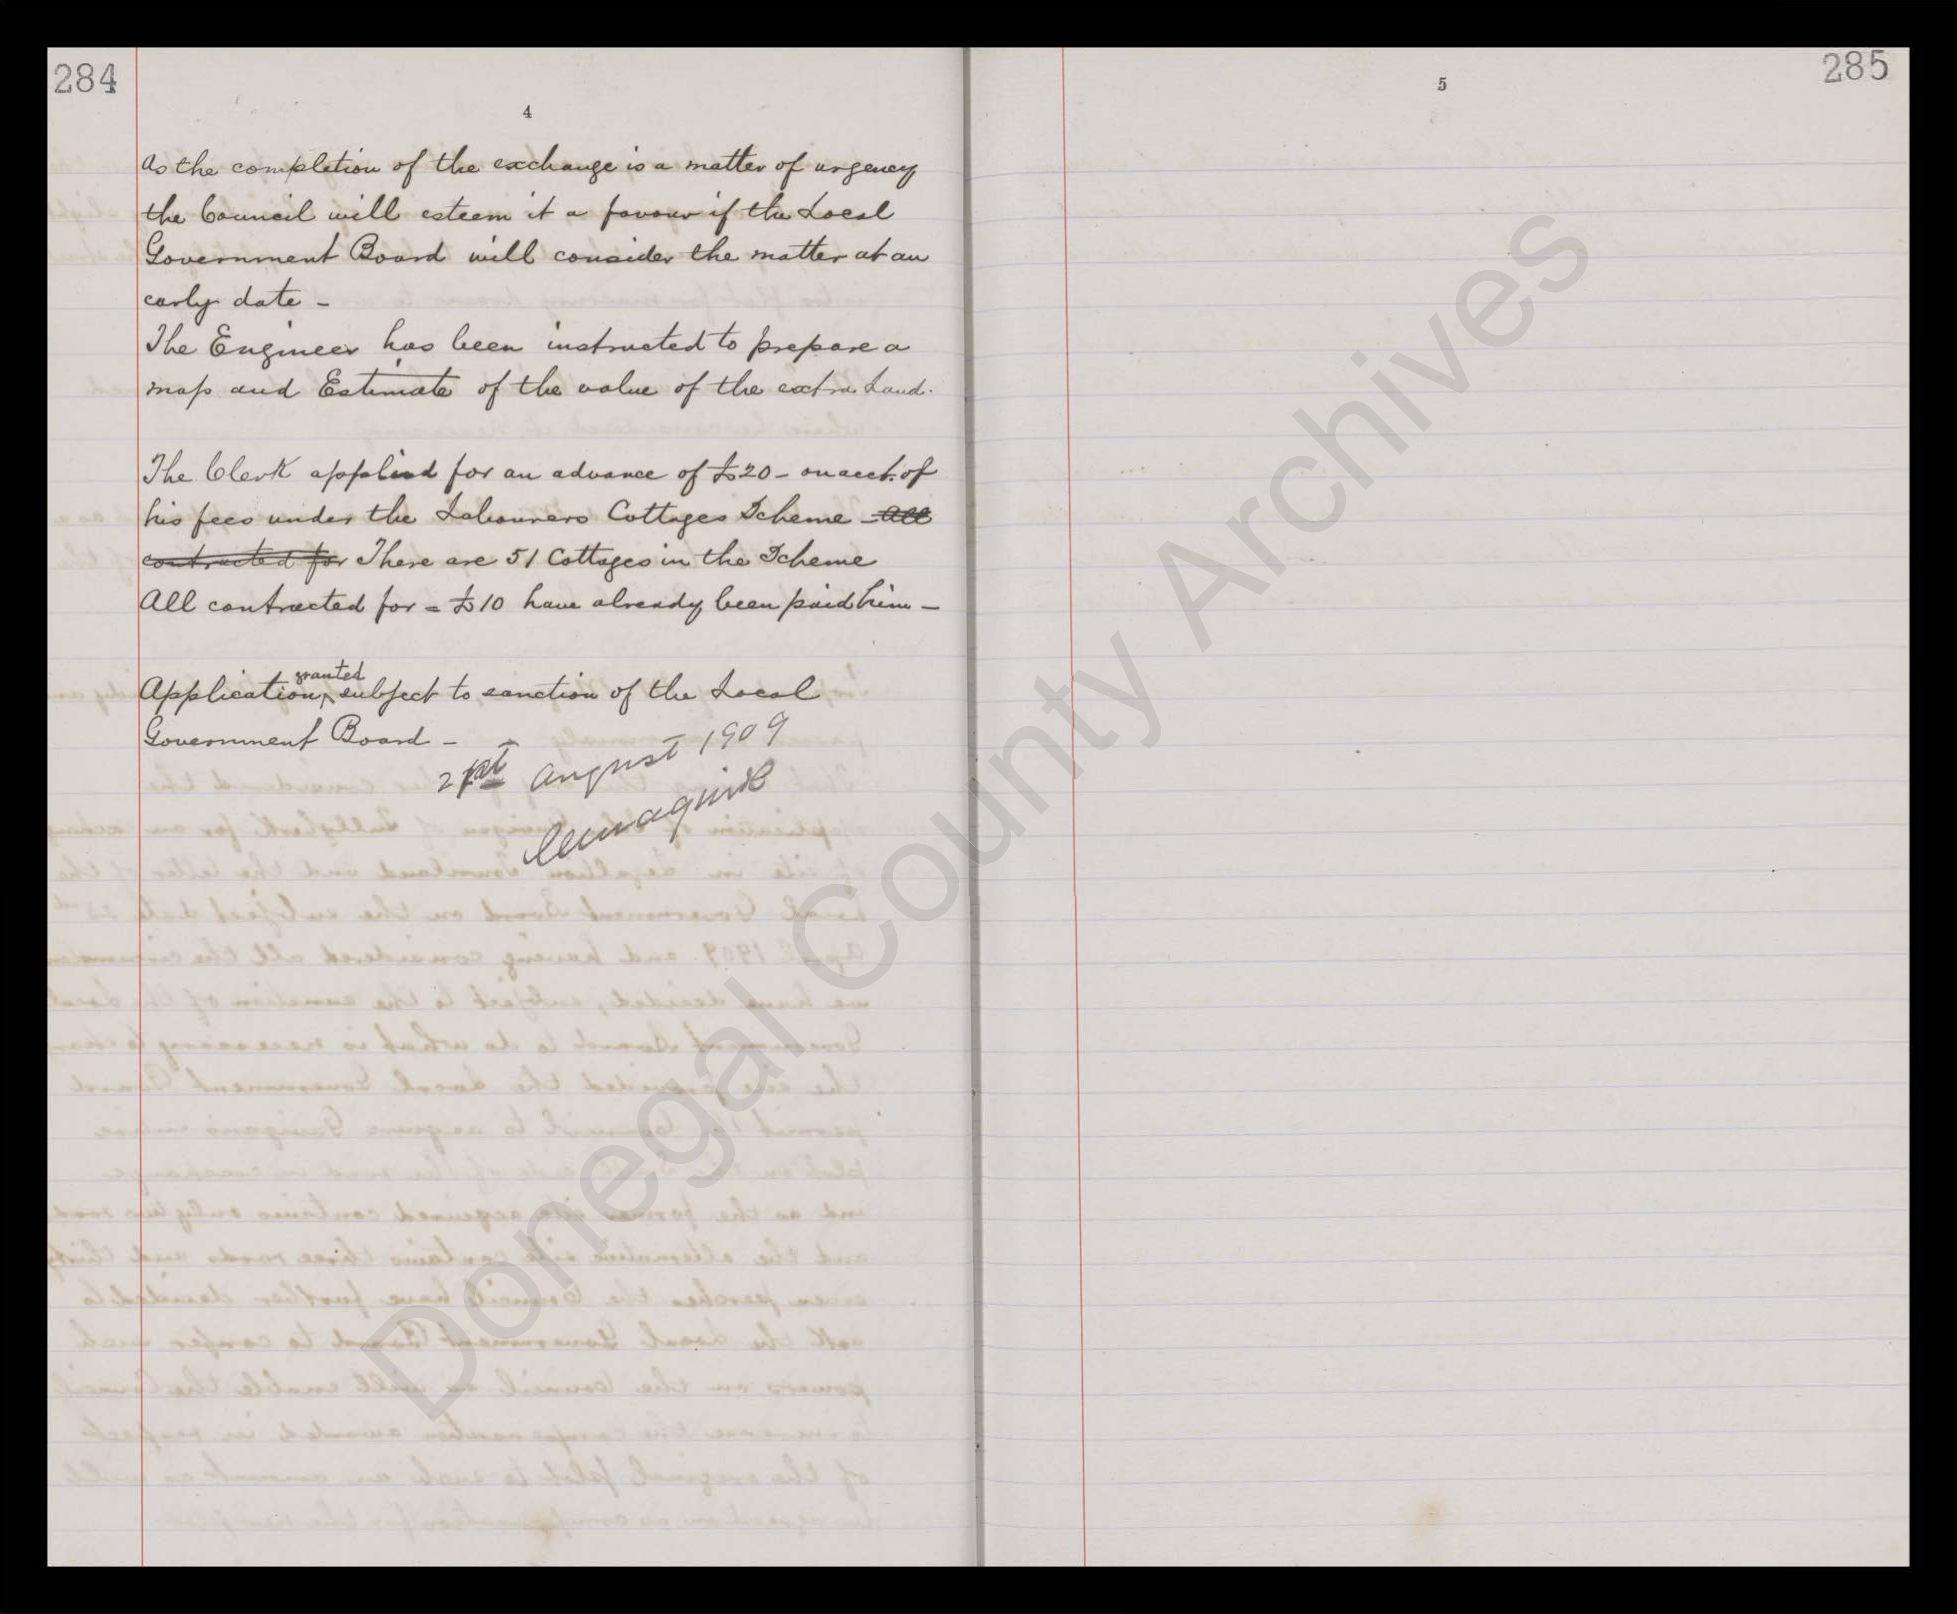 284
4
As the completion of the exchange is a matter of urgency
the Council will esteem it a favour if the Local
Government Board will consider the matter at an
early date -
The Engineer has been instructed to prepare a
map and Estimate of the value of the extra Land.
The Clerk applied for an advance of £20 - on acct. of
his fees under the Labourers Cottages Scheme - All
contracted for There are 51 Cottages in the Scheme
All contracted for = £10 have already been paid him -
granted
Application, subject to sanction of the Local
Government Board -
21st August 1909
285
5
Donegal County Archives